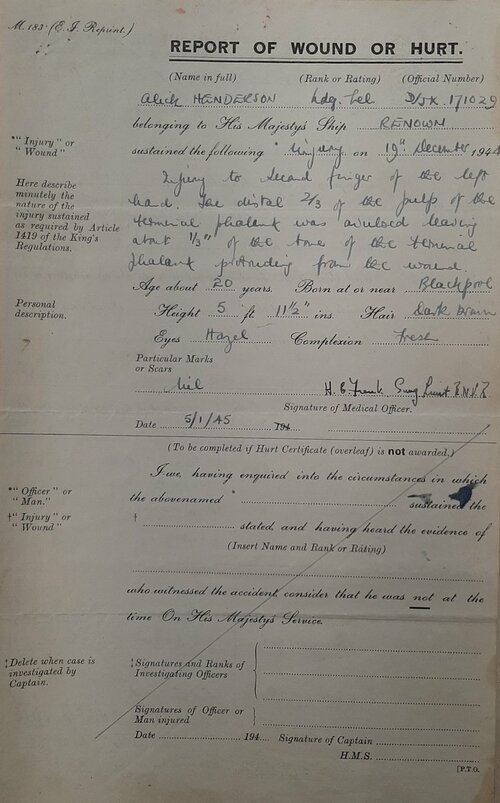 M. 183 (E. J. Reprint.)
REPORT OF WOUND OR HURT.
(Name in full) (Rank or Rating) (Official Number)
Alick HENDERSON Ldg. Tel D/JX 171029
belonging to His Majesty's Ship RENOWN
*" Injury " or " Wound " sustained the following * Injury on 19th December 1944
Here describe minutely the nature of the injury sustained as required by Article 1419 of the King's Regulations.
Injury to second finger of the left
hand. The distal 2/3 of the pulp of the
terminal phalanx was avulsed leaving
about 1/3" of the bone of the terminal
phalanx protruding from the wound.
Personal description.
Age about 20 years. Born at or near Blackpool
Height 5 ft 11½" ins. Hair Dark brown
Eyes Hazel Complexion Fresh
Particular Marks
or Scars
Nil H. B. Surg Lieut R.N.V.R
Signature of Medical Officer.
Date 5/1/45 194
(To be completed if Hurt Certificate (overleaf) is not awarded.)
I-we, having enquired into the circumstances in which
*" Officer " or " Man." the abovenamed * sustained the
†" Injury " or " Wound " † stated, and having heard the evidence of
(Insert Name and Rank or Rating)
who witnessed the accident, consider that he was not at the
time On His Majesty's Service.
‡Delete when case is investigated by Captain.
‡Signatures and Ranks of
Investigating Officers
Signatures of Officer or
Man injured
Date 194 Signature of Captain
H.M.S.
[P.T.O.